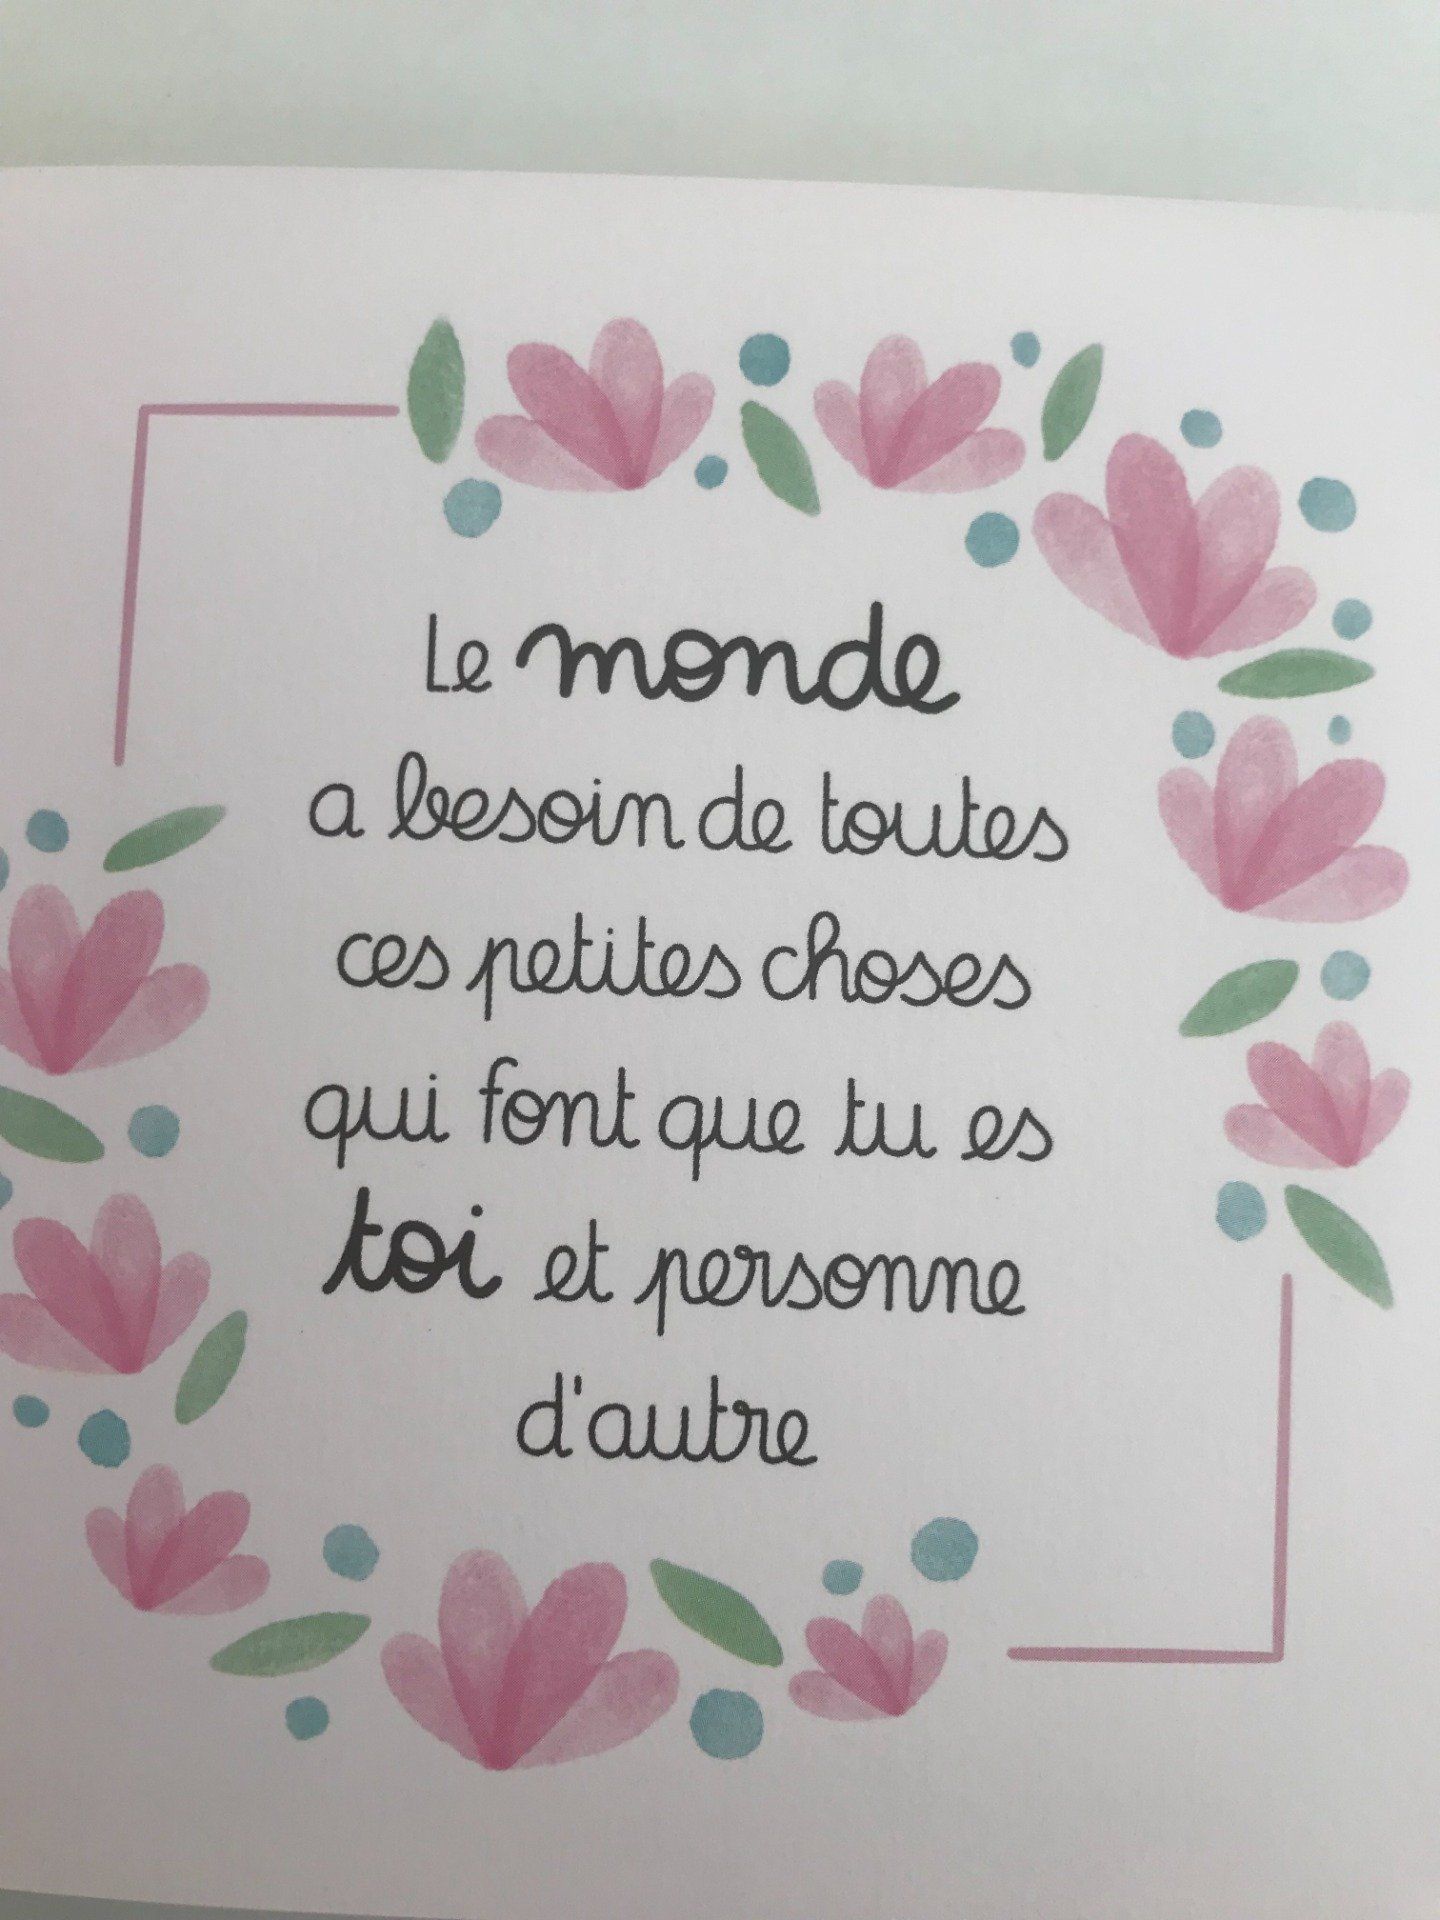 Le monde
a besoin de toutes
ces petites choses
qui font que tu es
toi et personne
d'autre